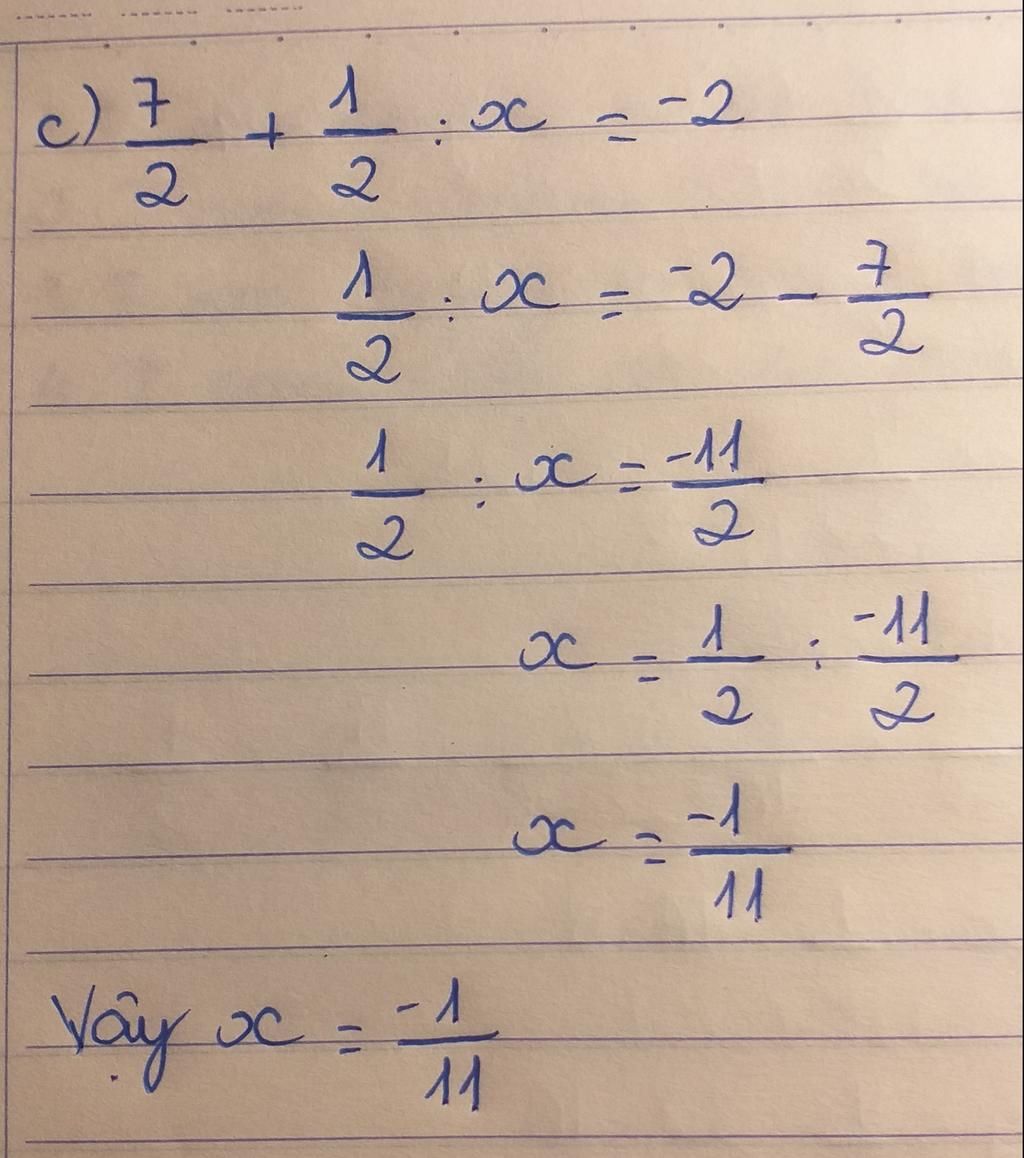 c) 7/2 + 1/2 : x = -2
1/2 : x = -2 - 7/2
1/2 : x = -11/2
x = 1/2 : -11/2
x = -1/11
Vậy x = -1/11